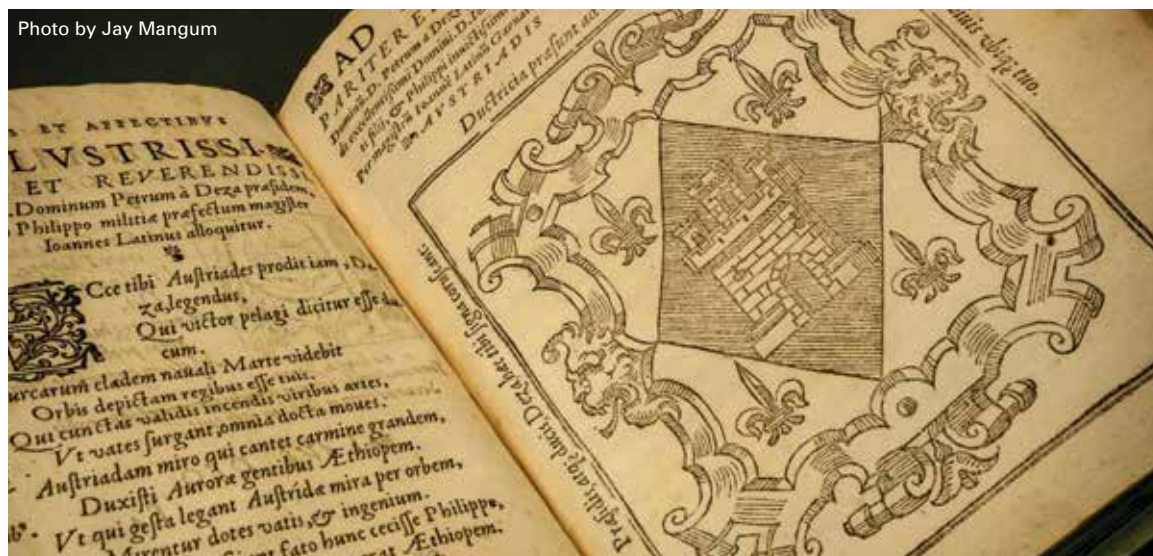 Photo by Jay Mangum
ET AFFECTIBVS
LVSTRISSI
ET REVERENDISS
Dominum Petrum à Deza præsidem,
Philippo militiæ præfectum magister
Ioannes Latinus alloquitur.
Cce tibi Austriades prodit iam, De
za, legendus,
Qui victor pelagi dicitur esse
cum.
urcarum cladem nauali Marte videbit
Orbis depictam regibus esse tuis.
Qui cunctas validis incendis viribus artes,
Vt vates surgant, omnia docta moues.
Austriadam miro qui cantet carmine grandem,
Duxisti Auroræ gentibus Æthiopem.
Vt qui gesta legant Austridæ mira per orbem,
Mirentur dotes vatis, & ingenium.
fato hunc cecisse Philippe,
Æthiopem.
AD
PARITER E
Domin. D. Petrum a Deza
& reuerendissimi Domini. D.
ti filij, & Philippi inuictissimi
Per magistrũ Ioannē Latinũ Garnat
AVSTRIADIS
Ductricia præsunt
siuis vbiq; tuo.
Præsidis, atq; ducis Deza hec tibi signa coruscant.